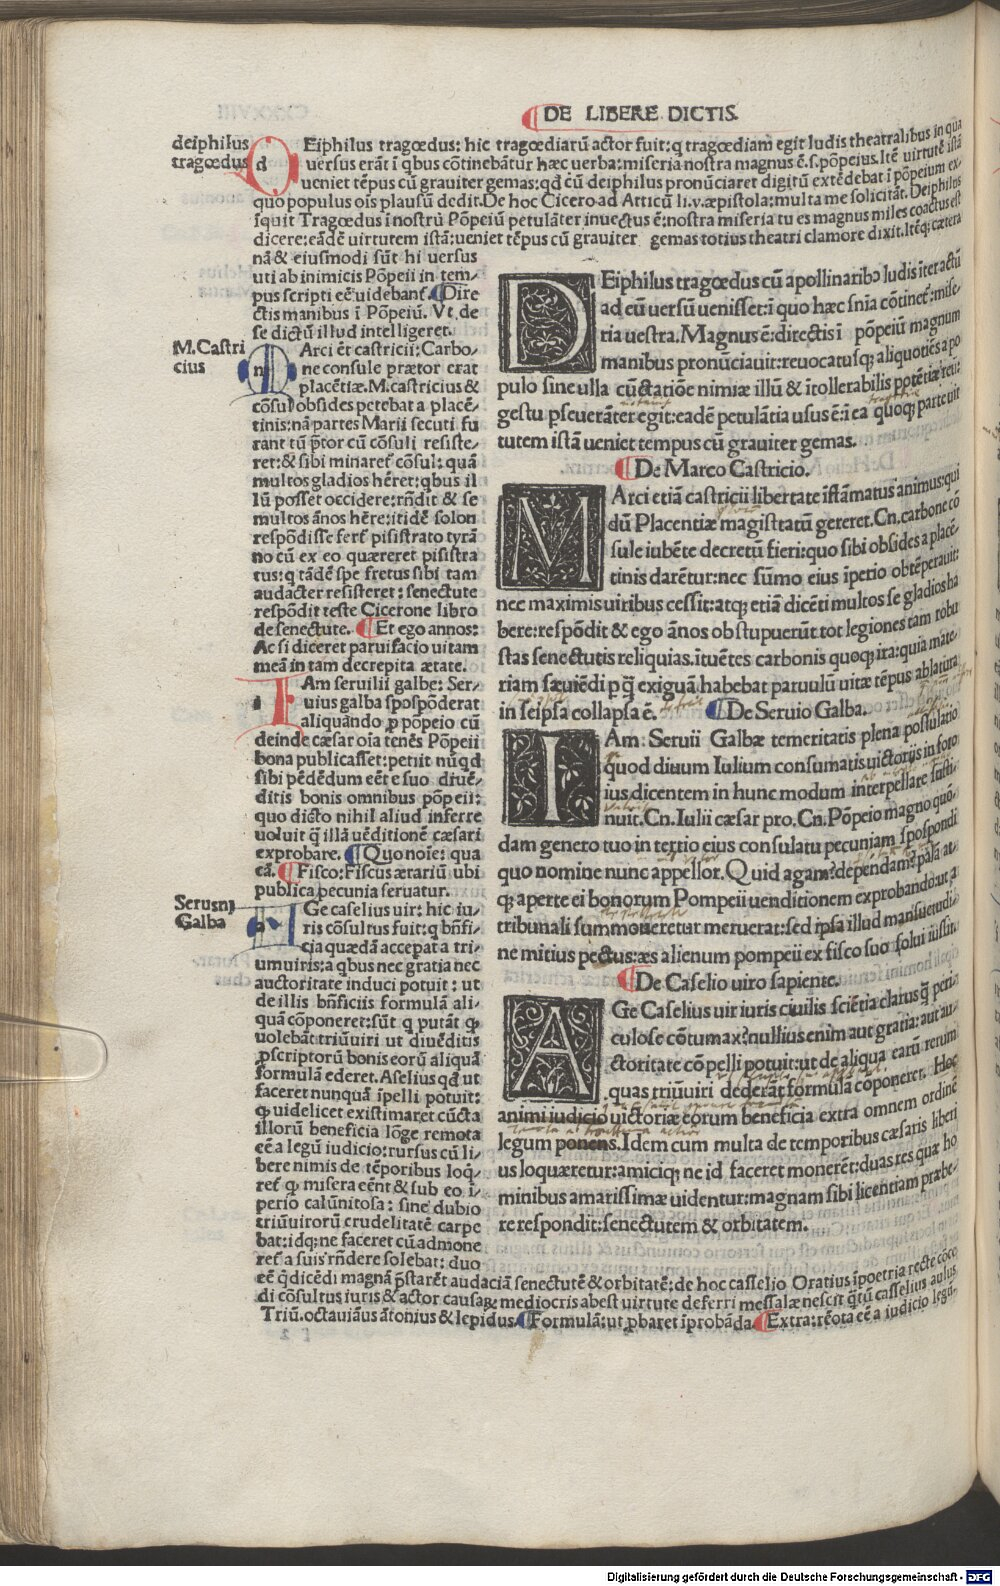 DE LIBERE DICTIS.
deiphilus
tragœdus
d Eiphilus tragœdus: hic tragœdiarũ actor fuit: q tragœdiam egit ludis theatralibus in qua
uersus erãt ĩ qbus cõtinebãtur hæc uerba: miseria nostra magnus ẽ.s.põpeius.Itẽ uirtutẽ istã
ueniet tẽpus cũ grauiter gemas: qd cũ deiphilus pronũciaret digitũ extẽdebat ĩ põpeium ex
quo populus ois plausũ dedit. De hoc Cicero ad Atticũ li.v.æpistola: multa me solicitãt. Deiphilus
ĩquit Tragœdus ĩ nostrũ Põpeiũ petulãter inuectus ẽ: nostra miseria tu es magnus miles coactus est
dicere: eãdẽ uirtutem istã: ueniet tẽpus cũ grauiter gemas totius theatri clamore dixit. Itẽq; cætera
nã & eiusmodi sũt hi uersus
uti ab inimicis Põpeii in tem-
pus scripti eẽ uidebant̃. Dire
ctis manibus ĩ Põpeiũ. Vt de
se dictũ illud intelligeret.
M. Castri
cius
m Arci ẽt castricii: Carbo-
ne consule prætor erat
placẽtiæ. M. castricius &
cõsul obsides petebat a placẽ-
tinis: nã partes Marii secuti fu
rant tũ p̃tor cũ cõsuli resiste-
ret: & sibi minaret̃ cõsul: quã
multos gladios hẽret: qbus il
lũ posset occidere: rñdit & se
multos ãnos hẽre: itidẽ solon
respõdisse fert̃ pisistrato tyrã
no cũ ex eo quæreret pisistra
tus: q tãdẽ spe fretus sibi tam
audacter resisteret: senectute
respõdit teste Cicerone libro
de senectute. Et ego annos:
Ac si diceret paruifacio uitam
meã in tam decrepita ætate.
i Am seruilii galbe: Ser-
uius galba spospõderat
aliquãndo p põpeio cũ
deinde cæsar oĩa tenẽs Põpeii
bona publicasset: petiit nũqd
sibi pẽdẽdum eẽt e suo diuẽ-
ditis bonis omnibus põpeii:
quo dicto nihil aliud inferre
uoluit q̃ illã uẽditionẽ cæsari
exprobare. Quo noĩe: qua
cã. Fisco: Fiscus ærariũ ubi
publica pecunia seruatur.
Serusnị
Galba
a Ge caselius uir: hic iu-
ris cõsultus fuit: q bñfi-
cia quædã accepat a tri-
umuiris: a qbus nec gratia nec
auctoritate induci potuit: ut
de illis bñficiis formulã ali-
quã cõponeret: sũt q putãt q
uolebãt triũuiri ut diuẽditis
pscriptorũ bonis eorũ aliquã
formulã ederet. Aselius qd ut
faceret nunquã ĩpelli potuit:
q uidelicet existimaret cũcta
illorũ beneficia lõge remota
eẽ a legũ iudicio: rursus cũ li-
bere nimis de tẽporibus loq̃-
ret̃ q misera eẽnt & sub eo ĩ-
perio calũnitosa: sine dubio
triũuirorũ crudelitatẽ carpe
bat: idq; ne faceret cũ admone
ret̃ a suis rñdere solebat: duo
eẽ q̃ dicẽdi magnã p̃starẽt audaciã senectutẽ & orbitatẽ: de hoc casselio Oratius ĩ poetria recte cõco
di cõsultus iuris & actor causaꝝ mediocris abest uirtute deferri messalæ nescit q̃tũ casselius aulus
Triũ. octauiãus ãtonius & lepidus. Formulã: ut pbaret ĩprobãda. Extra: rẽota eẽ a iudicio legũ.
D Eiphilus tragœdus cũ apollinarib⁹ ludis iter actũ
ad eũ uersũ uenisset: ĩ quo hæc sñia cõtinet̃: mise-
ria uestra. Magnus ẽ: directis ĩ põpeiũ magnum
manibus pronũciauit: reuocatusq; aliquotiẽs a po
pulo sine ulla cũctatiõe nimiæ illũ & ĩtollerabilis potẽtiæ reũ:
gestu pseuerãter egit: eadẽ petulãtia usus ẽ: ĩ ea quoq; parte uir
tutem istã ueniet tempus cũ grauiter gemas.
De Marco Castricio.
M Arci etiã castricii libertate ĩflãmatus animus: qui
dũ Placentiæ magistratũ gereret. Cn. carbone cõ
sule iubẽte decretũ fieri: quo sibi obsides a placẽ-
tinis darẽtur: nec sũmo eius ĩperio obtẽperauit:
nec maximis uiribus cessit: atq; etiã dicẽti multos se gladios ha
bere: respõdit & ego ãnos obstupuerũt tot legiones tam robu
stas senectutis reliquias. ĩtuẽtes carbonis quoq; ira: quia mate-
riam sæuiẽdi p q̃ exiguã habebat paruulũ uitæ tẽpus ablatura
in seipsa collapsa ẽ. De Seruio Galba.
I Am: Seruii Galbæ temeritatis plena postulatio
quod diuum Iulium consumatis uictoriis in foro
ius dicentem in hunc modum interpellare susti-
nuit. Cn. Iulii cæsar pro. Cn. Põpeio magno quõ-
dam genero tuo in tertio eius consulatu pecuniam spospondi
quo nomine nunc appellor. Quid agam? dependam? palã at-
q; aperte ei bonorum Pompeii uenditionem exprobando: ut a
tribunali summoueretur meruerat: sed ipsa illud mansuetudi-
ne mitius pectus: æs alienum pompeii ex fisco suo solui iussit.
De Caselio uiro sapiente.
A Ge Caselius uir iuris ciuilis sciẽtia clarus q̃ peri-
culose cõtumax? nullius enim aut gratia: aut au-
ctoritate cõpelli potuit: ut de aliqua earũ rerum
quas triũuiri dederãt formulã cõponeret. Hoc
animi iudicio uictoriæ eorum beneficia extra omnem ordinẽ
legum ponens. Idem cum multa de temporibus cæsaris liberi
us loquæretur: amiciq; ne id faceret monerẽt: duas res quæ ho
minibus amarissimæ uidentur: magnam sibi licentiam præbe-
re respondit: senectutem & orbitatem.
Digitalisierung gefördert durch die Deutsche Forschungsgemeinschaft - DFG